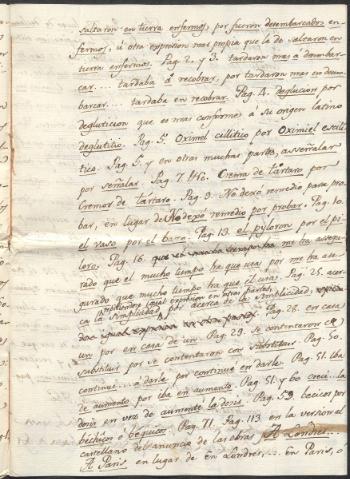 saltaron en tierra enfermos, por fueron desembarcados en-
fermos, ú otra expresion mas propia que la de saltaron en
tierra enfermos. Pag. 2. y 3. tardaron mas á desembar-
car.... tardaba á recobrar, por tardaron mas en desem-
barcar.... tardaba en recobrar. Pag. 4. deglucion por
deglutition que es mas conforme á su origen latino
deglutitio. Pag. 5. Oximel cillitico por Oximiel escili-
tico. Pag. 5. y en otras muchas partes, asseñalar
por señalar. Pag. 7. Crema de tártaro por
Cremor de tártaro. Pag. 9. No dexó remedio para pro-
bar, en lugar de No dexó remedio por probar. Pag. 10.
el vaso por el bazo. Pag. 13. el pyloron por el pi-
loro. Pag. 16. me ha assegu-
rado que el mucho tiempo ha que usa por me ha ase-
gurado que mucho tiempo ha que el usa. Pag. 25. acer-
ca la simplicidad por acerca de la simplicidad,
Pag. 28. en casa
un por en casa de un. Pag. 29. se contentaron de
substituir por se contentaron con substituir. Pag. 50.
continue... á darle por continue en darle. Pag. 51. iba
de aumento por iba en aumento. Pag. 51. y 60 creci... la
dosis en vez de aumenté la dosis. Pag. 59 becicos por
béchicos ó béquicos. Pag. 71, Pag. 113 en la version al
castellano del anuncio de las obras A Londres...
A Paris en lugar de en Londres... en Paris, o